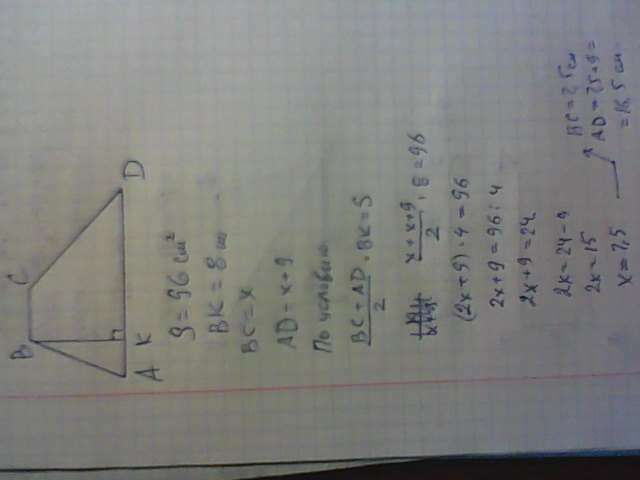 B C
A K D
S = 96 см²
BK = 8 см
BC = x
AD = x + 9
По условию
(BC + AD)/2 · BK = S
(x + x + 9)/2 · 8 = 96
(2x + 9) · 4 = 96
2x + 9 = 96 : 4
2x + 9 = 24
2x = 24 - 9
2x = 15
x = 7,5
BC = 7,5 см
AD = 7,5 + 9 =
= 16,5 см